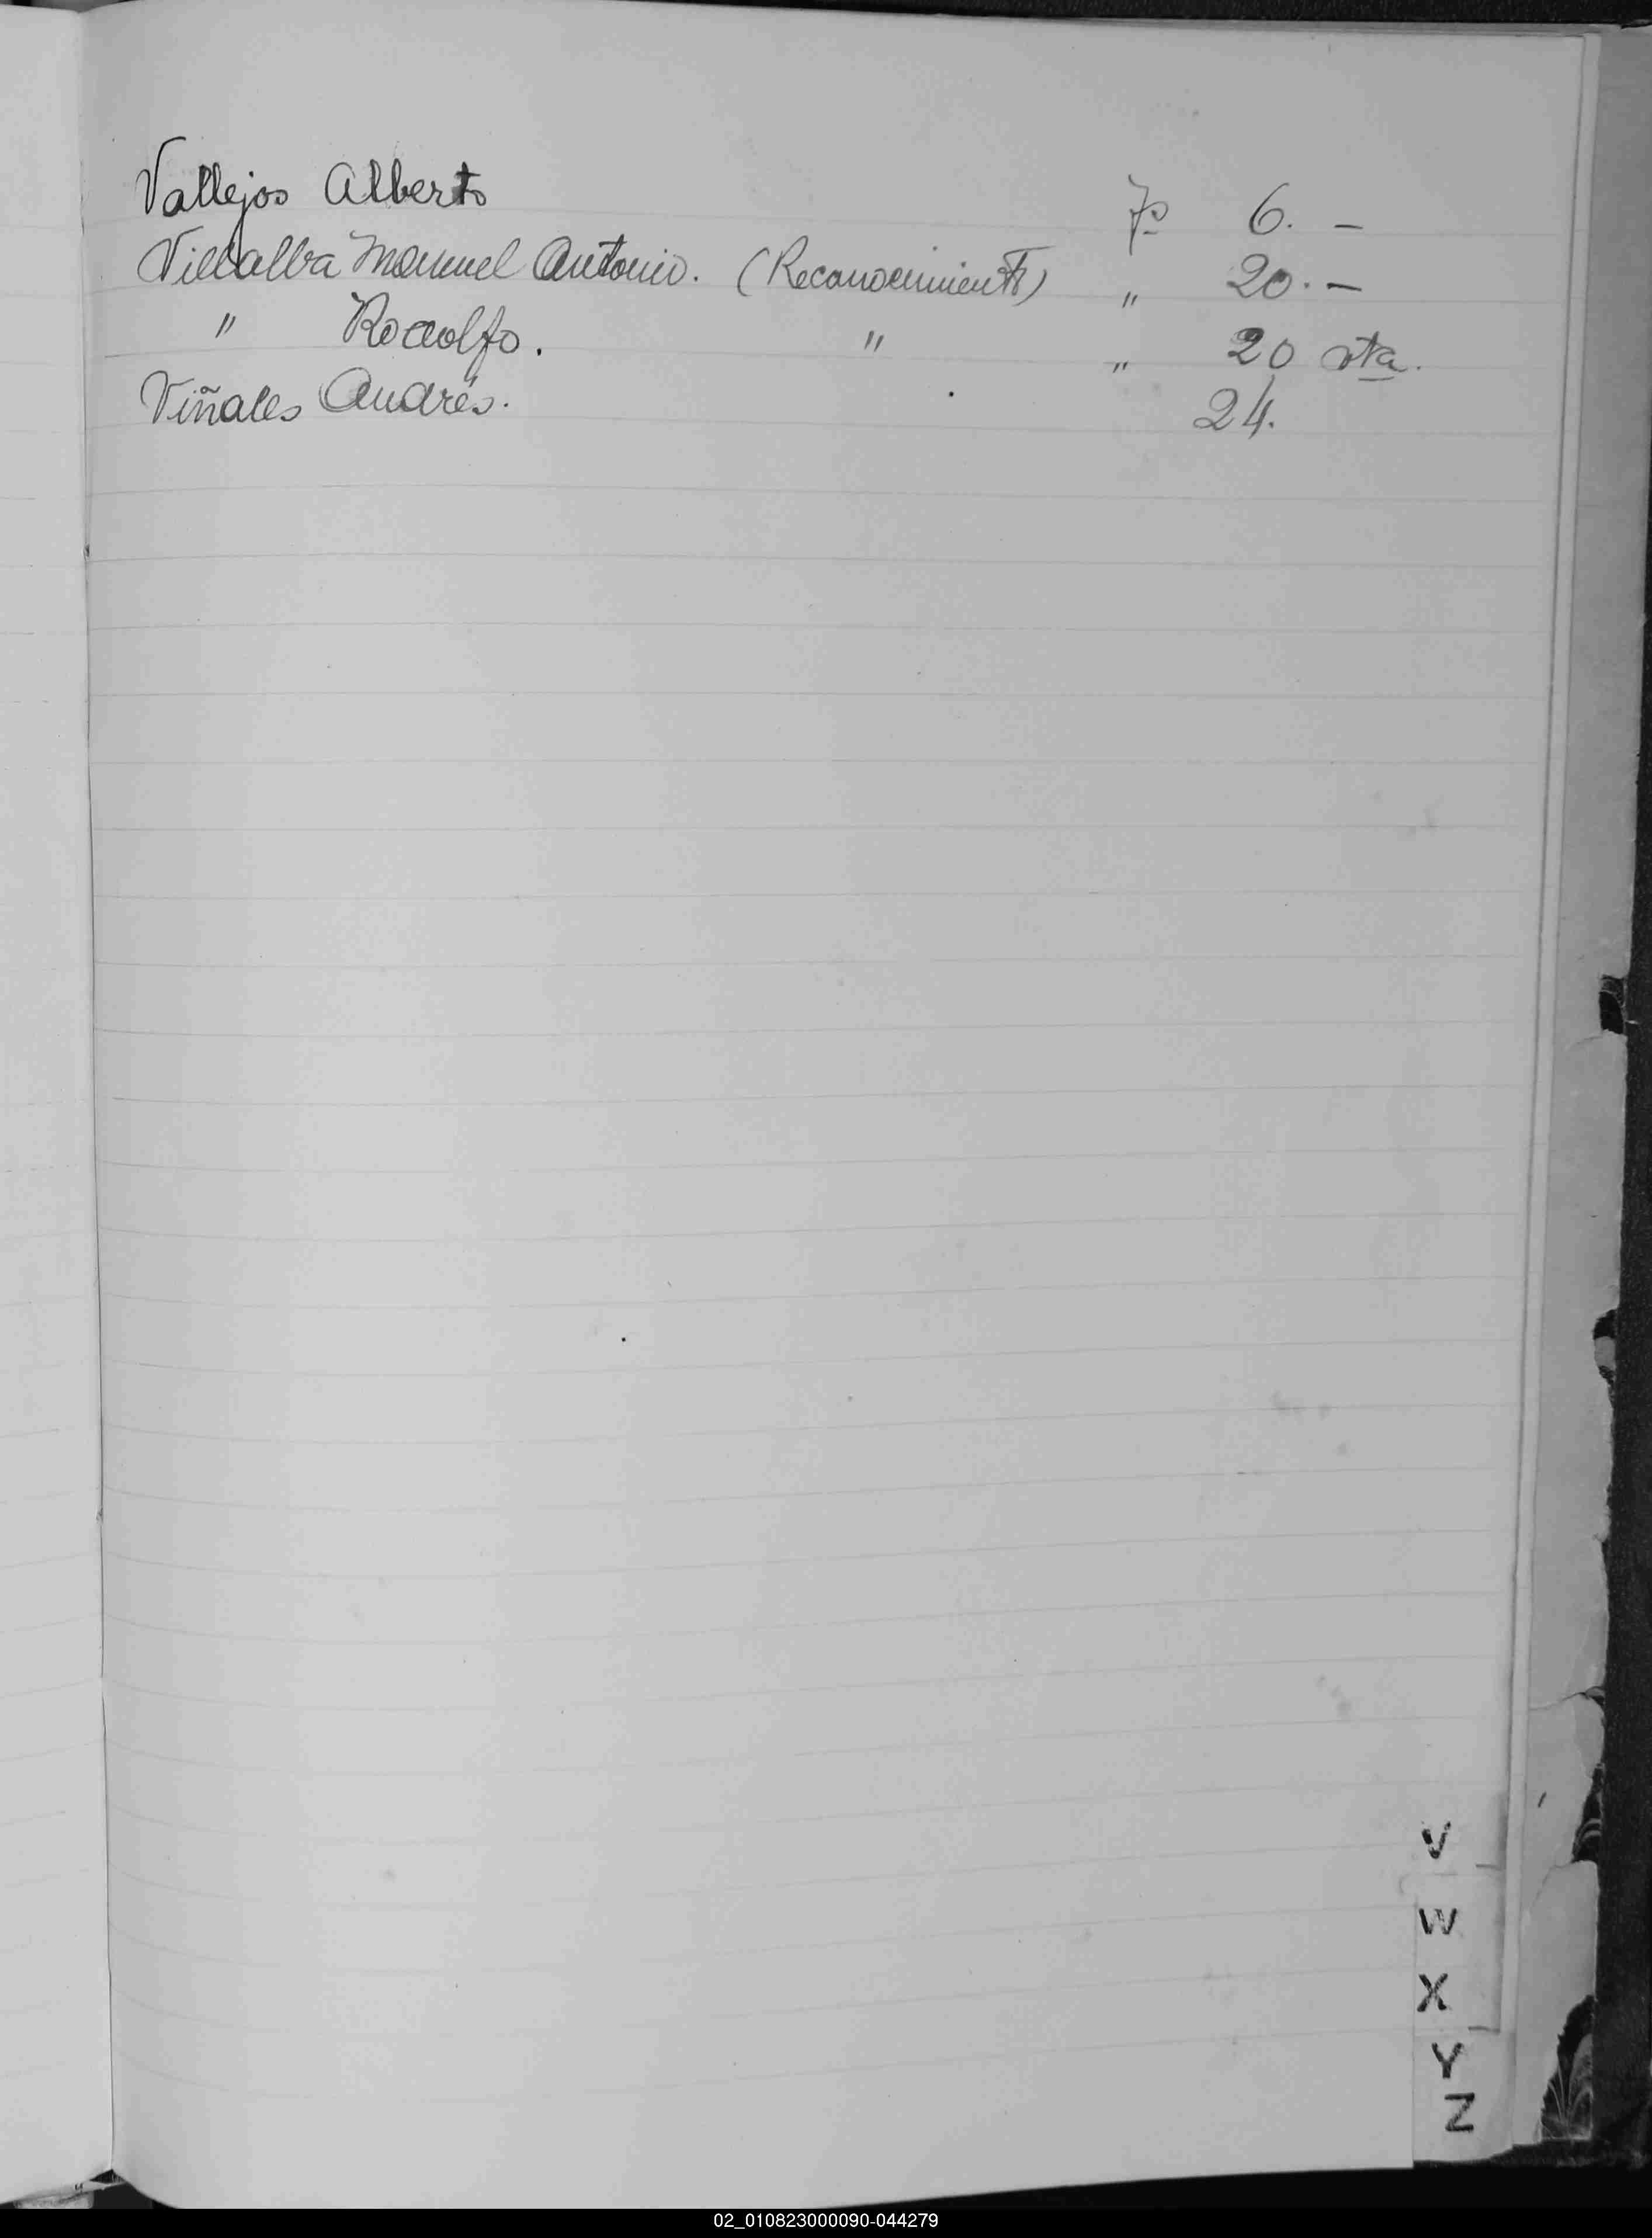 Vallejos Alberto Fº 6. –
Villalba Manuel Antonio. (Reconocimiento) " 20. –
" Rodolfo. " " 20 vta.
Viñales Andrés. 24.
V
W
X
Y
Z
02_010823000090-044279